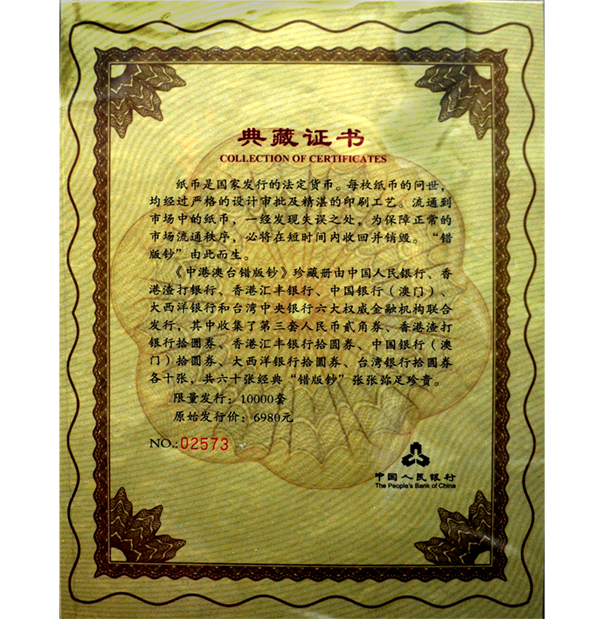 典藏证书
COLLECTION OF CERTIFICATES
纸币是国家发行的法定货币。每枚纸币的问世，
均经过严格的设计审批及精湛的印刷工艺。流通到
市场中的纸币，一经发现失误之处，为保障正常的
市场流通秩序，必将在短时间内收回并销毁。“错
版钞”由此而生。
《中港澳台错版钞》珍藏册由中国人民银行、香
港渣打银行、香港汇丰银行、中国银行（澳门）、
大西洋银行和台湾中央银行六大权威金融机构联合
发行，其中收集了第三套人民币贰角券、香港渣打
银行拾圆券、香港汇丰银行拾圆券、中国银行（澳
门）拾圆券、大西洋银行拾圆券、台湾银行拾圆券
各十张，共六十张经典“错版钞”张张弥足珍贵。
限量发行：10000套
原始发行价：6980元
NO.:02573
中国人民银行
The People's Bank of China